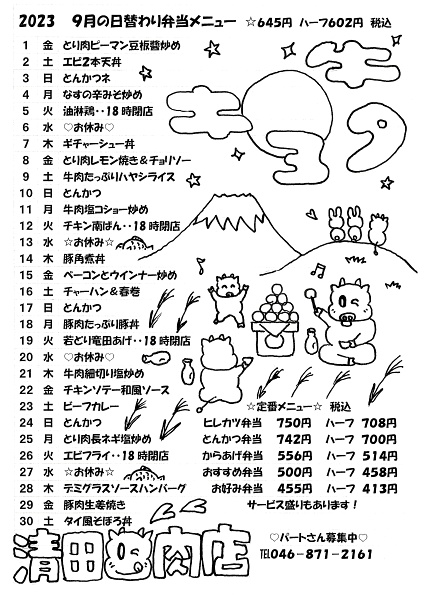 2023 9月の日替わり弁当メニュー ☆645円 ハーフ602円 税込
1 金 とり肉ピーマン豆板醤炒め
2 土 エビ2本天丼
3 日 とんかつネ
4 月 なすの辛みそ炒め
5 火 油淋鶏‥18時閉店
6 水 ♡お休み♡
7 木 ギチャーシュー丼
8 金 とり肉レモン焼き&チョリソー
9 土 牛肉たっぷりハヤシライス
10 日 とんかつ
11 月 牛肉塩コショー炒め
12 火 チキン南ばん‥18時閉店
13 水 ☆お休み☆
14 木 豚角煮丼
15 金 ベーコンとウインナー炒め
16 土 チャーハン&春巻
17 日 とんかつ
18 月 豚肉たっぷり豚丼
19 火 若どり竜田あげ‥18時閉店
20 水 ♡お休み♡
21 木 牛肉細切り塩炒め
22 金 チキンソテー和風ソース
23 土 ビーフカレー
24 日 とんかつ
25 月 とり肉長ネギ塩炒め
26 火 エビフライ‥18時閉店
27 水 ☆お休み☆
28 木 デミグラスソースハンバーグ
29 金 豚肉生姜焼き
30 土 タイ風そぼろ丼
キョ9キ
☆定番メニュー☆ 税込
ヒレカツ弁当 750円 ハーフ 708円
とんかつ弁当 742円 ハーフ 700円
からあげ弁当 556円 ハーフ 514円
おすすめ弁当 500円 ハーフ 458円
お好み弁当 455円 ハーフ 413円
サービス盛りもあります!
清田肉店
♡パートさん募集中♡
℡046-871-2161